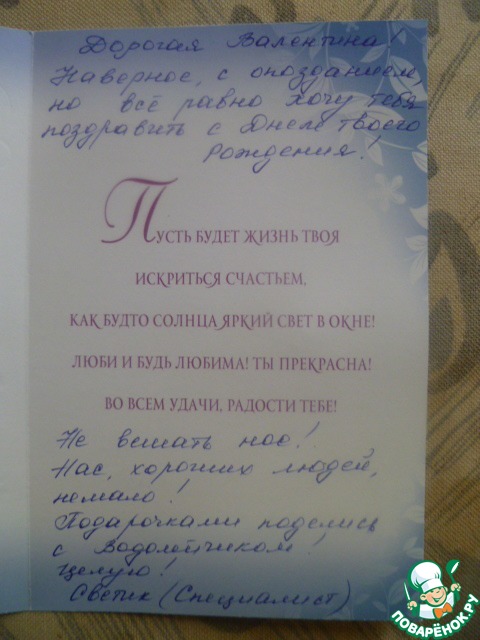 Дорогая Валентина!
Наверное, с опозданием,
но всё равно хочу тебя
поздравить с Днем твоего
рождения!
Пусть будет жизнь твоя
искриться счастьем,
как будто солнца яркий свет в окне!
Люби и будь любима! Ты прекрасна!
Во всем удачи, радости тебе!
Не вешать нос!
Нас, хороших людей,
немало!
Подарочками поделись
с Водолейчиком!
Целую!
Светик (Специалист)
ПОВАРЁНОК.РУ